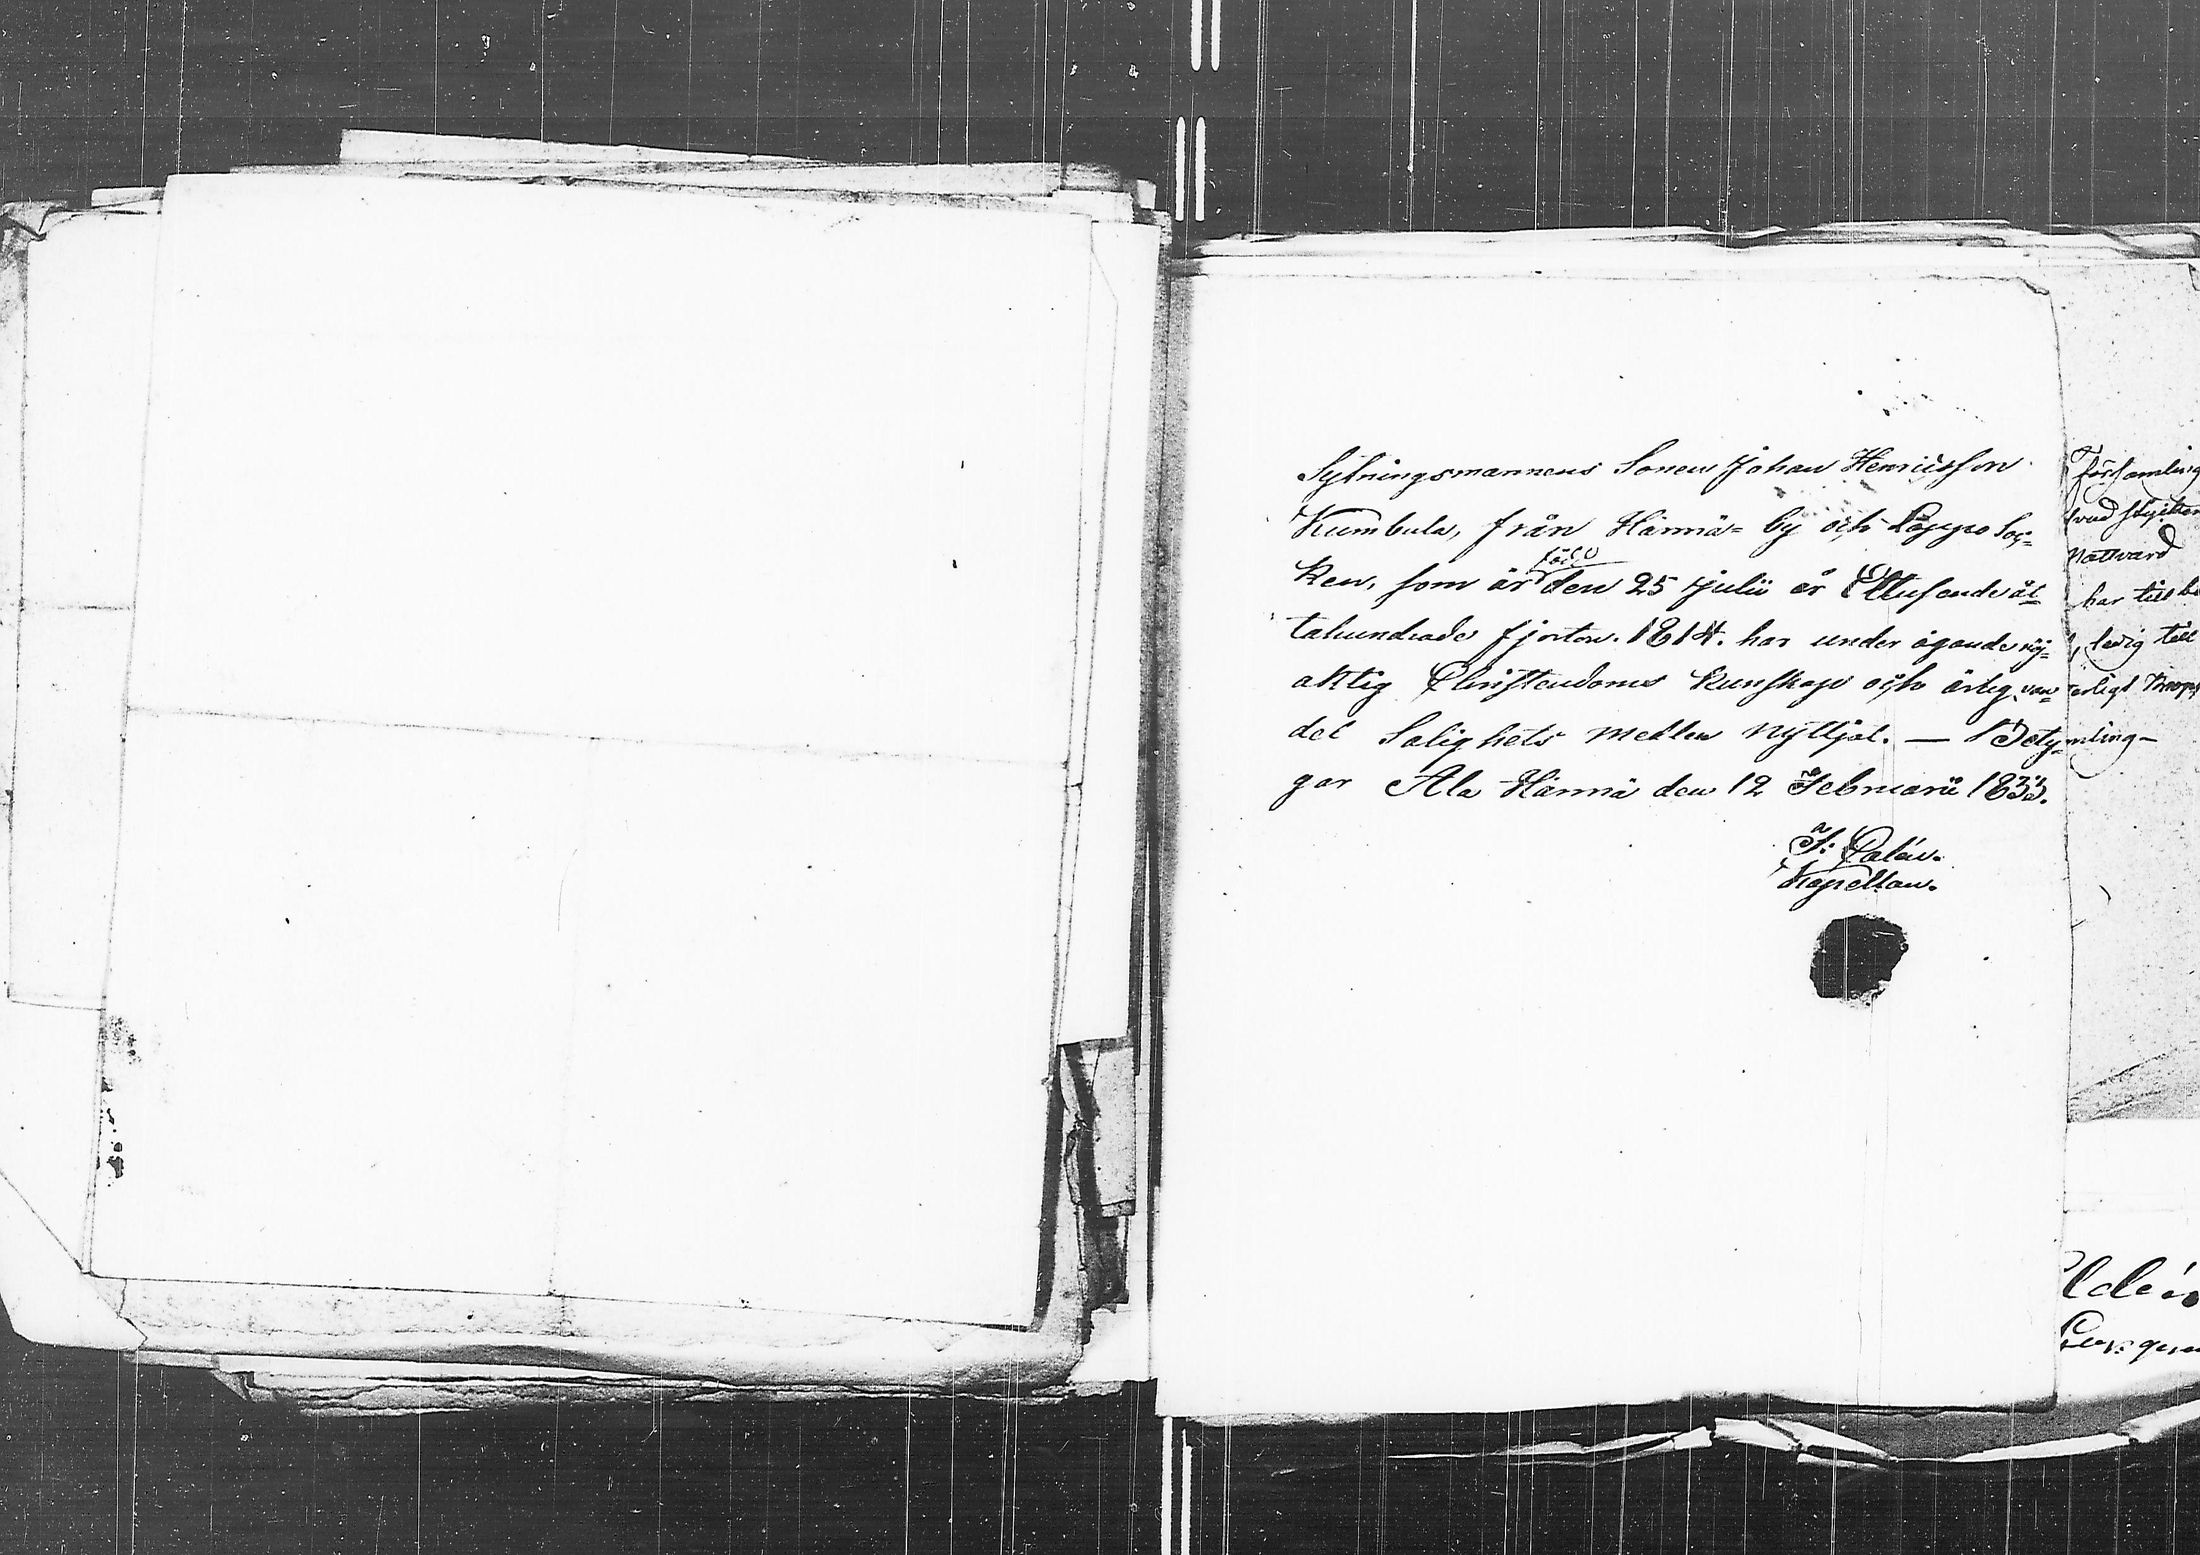 Sytningsmannens Sonen Johan Henricsson
Kumbula, från Härmä= by och Lappo Soc=
ken, som är född den 25 Julii år Ettusendeåt=
tahundrade fjorton. 1814. har under ägande rig=
aktig Christendoms kunskap och ärlig van=
del Salighets medlen nyttjat. — Bety=
gar Ala Härmä den 12 Februarii 1833.
J: Calén.
Kapellan.
församling
Nattvard
har till
ledig till
mling-